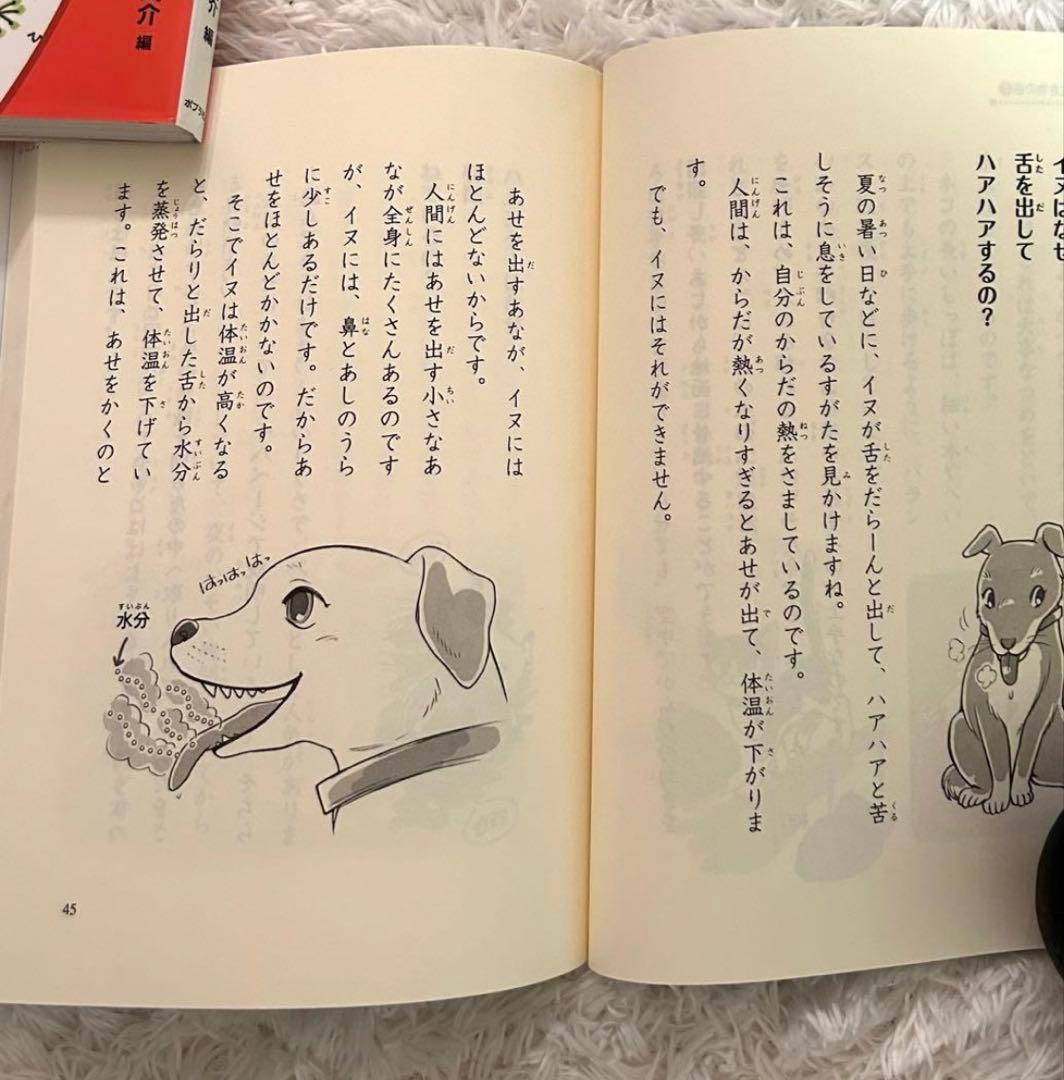 イヌはなぜ
舌を出して
ハアハアするの?
夏の暑い日などに、イヌが舌をだらーんと出して、ハアハアと苦
しそうに息をしているすがたを見かけますね。
これは、自分のからだの熱をさましているのです。
人間は、からだが熱くなりすぎるとあせが出て、体温が下がりま
す。
でも、イヌにはそれができません。
あせを出すあなが、イヌには
ほとんどないからです。
人間にはあせを出す小さなあ
ながが全身にたくさんあるのです
が、イヌには、鼻とあしのうら
に少しあるだけです。だからあ
せをほとんどかかないのです。
そこでイヌは体温が高くなる
と、だらりと出した舌から水分
を蒸発させて、体温を下げてい
ます。これは、あせをかくのと
はっはっはっ
水分
45
介 編
ポプラ